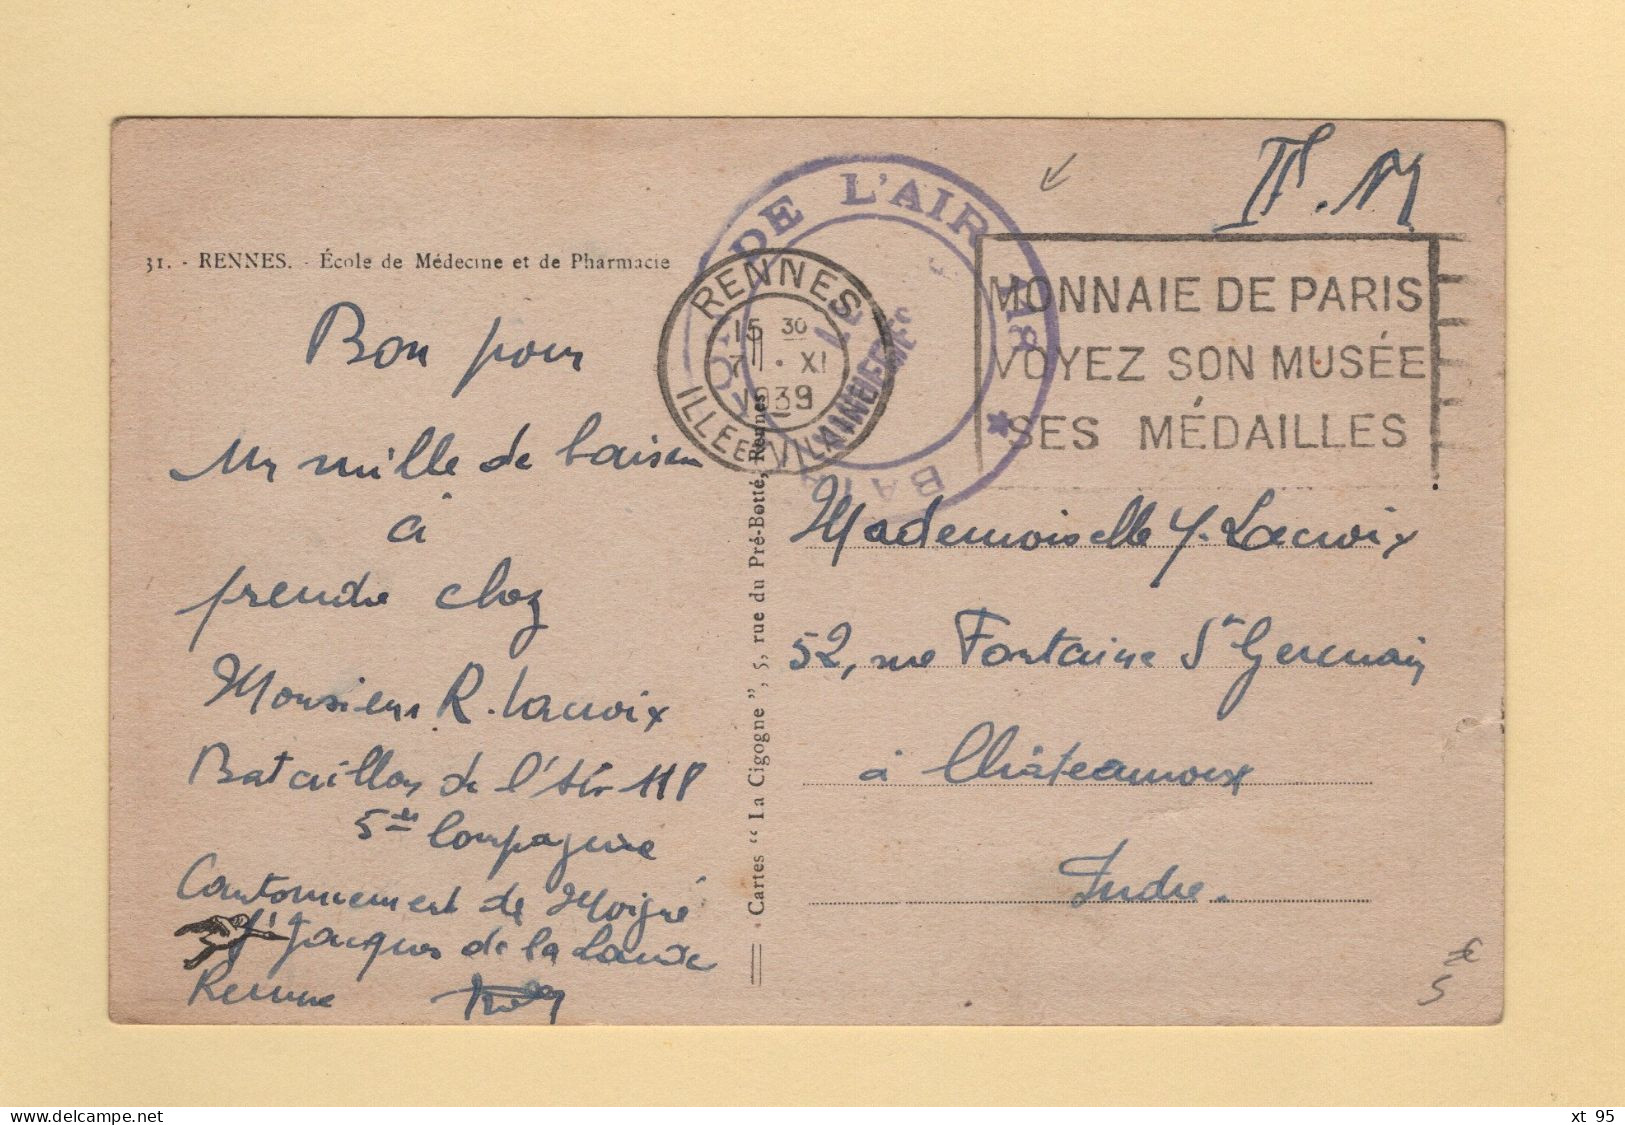 F.M
31. - RENNES. - École de Médecine et de Pharmacie
DE L'AIR
RENNES
15 30
7 · XI
1939
ILLE ET VILAINE
MONNAIE DE PARIS
VOYEZ SON MUSÉE
SES MÉDAILLES
Bon pour
un mille de baisers
à
prendre chez
Monsieur R. Lacroix
Bataillon de l'Air 118
5me Compagnie
Cantonnement de Moigné
St Jacques de la Lande
Rennes
· Cartes “ La Cigogne ”, 5, rue du Pré-Botté, Rennes
Mademoiselle Y. Lacroix
52, rue Fontaine St Germain
à Châteauroux
Indre.
€
5
xt 95
www.delcampe.net